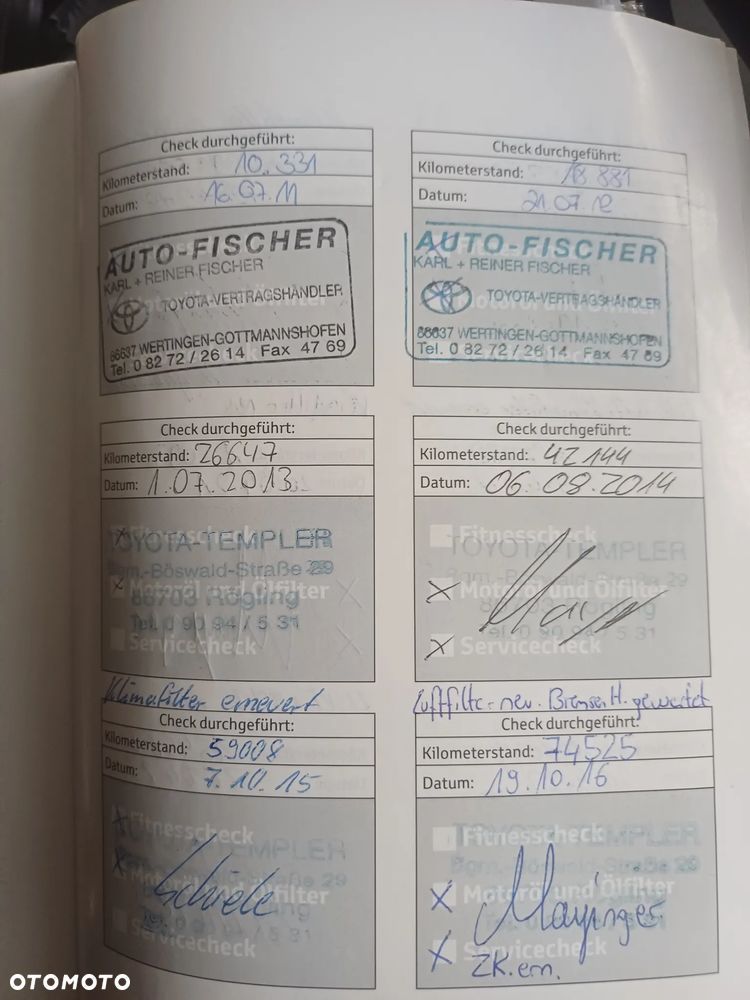 Check durchgeführt:
Kilometerstand: 10.331
Datum: 16.07.11
AUTO-FISCHER
KARL + REINER FISCHER
TOYOTA-VERTRAGSHÄNDLER
86637 WERTINGEN-GOTTMANNSHOFEN
Tel. 0 82 72 / 26 14 Fax 47 69
Check durchgeführt:
Kilometerstand: 18 881
Datum: 21.07.12
AUTO-FISCHER
KARL + REINER FISCHER
TOYOTA-VERTRAGSHÄNDLER
86637 WERTINGEN-GOTTMANNSHOFEN
Tel. 0 82 72 / 26 14 Fax 47 69
Check durchgeführt:
Kilometerstand: 26647
Datum: 1.07.2013
Fitnesscheck
TOYOTA-TEMPLER
Bgm.-Böswald-Straße 29
Motoröl und Ölfilter
86703 Rögling
Tel. 0 90 94 / 5 31
Servicecheck
Klimafilter erneuert
Check durchgeführt:
Kilometerstand: 42144
Datum: 06.08.2014
Fitnesscheck
TOYOTA-TEMPLER
Bgm.-Böswald-Straße 29
Motoröl und Ölfilter
86703 Rögling
Tel. 0 90 94 / 5 31
Servicecheck
Luftfilter neu. Bremse H. gewartet
Check durchgeführt:
Kilometerstand: 59008
Datum: 7.10.15
Fitnesscheck
TOYOTA-TEMPLER
Bgm.-Böswald-Straße 29
Motoröl und Ölfilter
Tel. 0 90 94 / 5 31
Servicecheck
Check durchgeführt:
Kilometerstand: 74525
Datum: 19.10.16
Fitnesscheck
TOYOTA-TEMPLER
Bgm.-Böswald-Straße 29
Motoröl und Ölfilter
Mayinger
Servicecheck
ZK.ern.
OTOMOTO